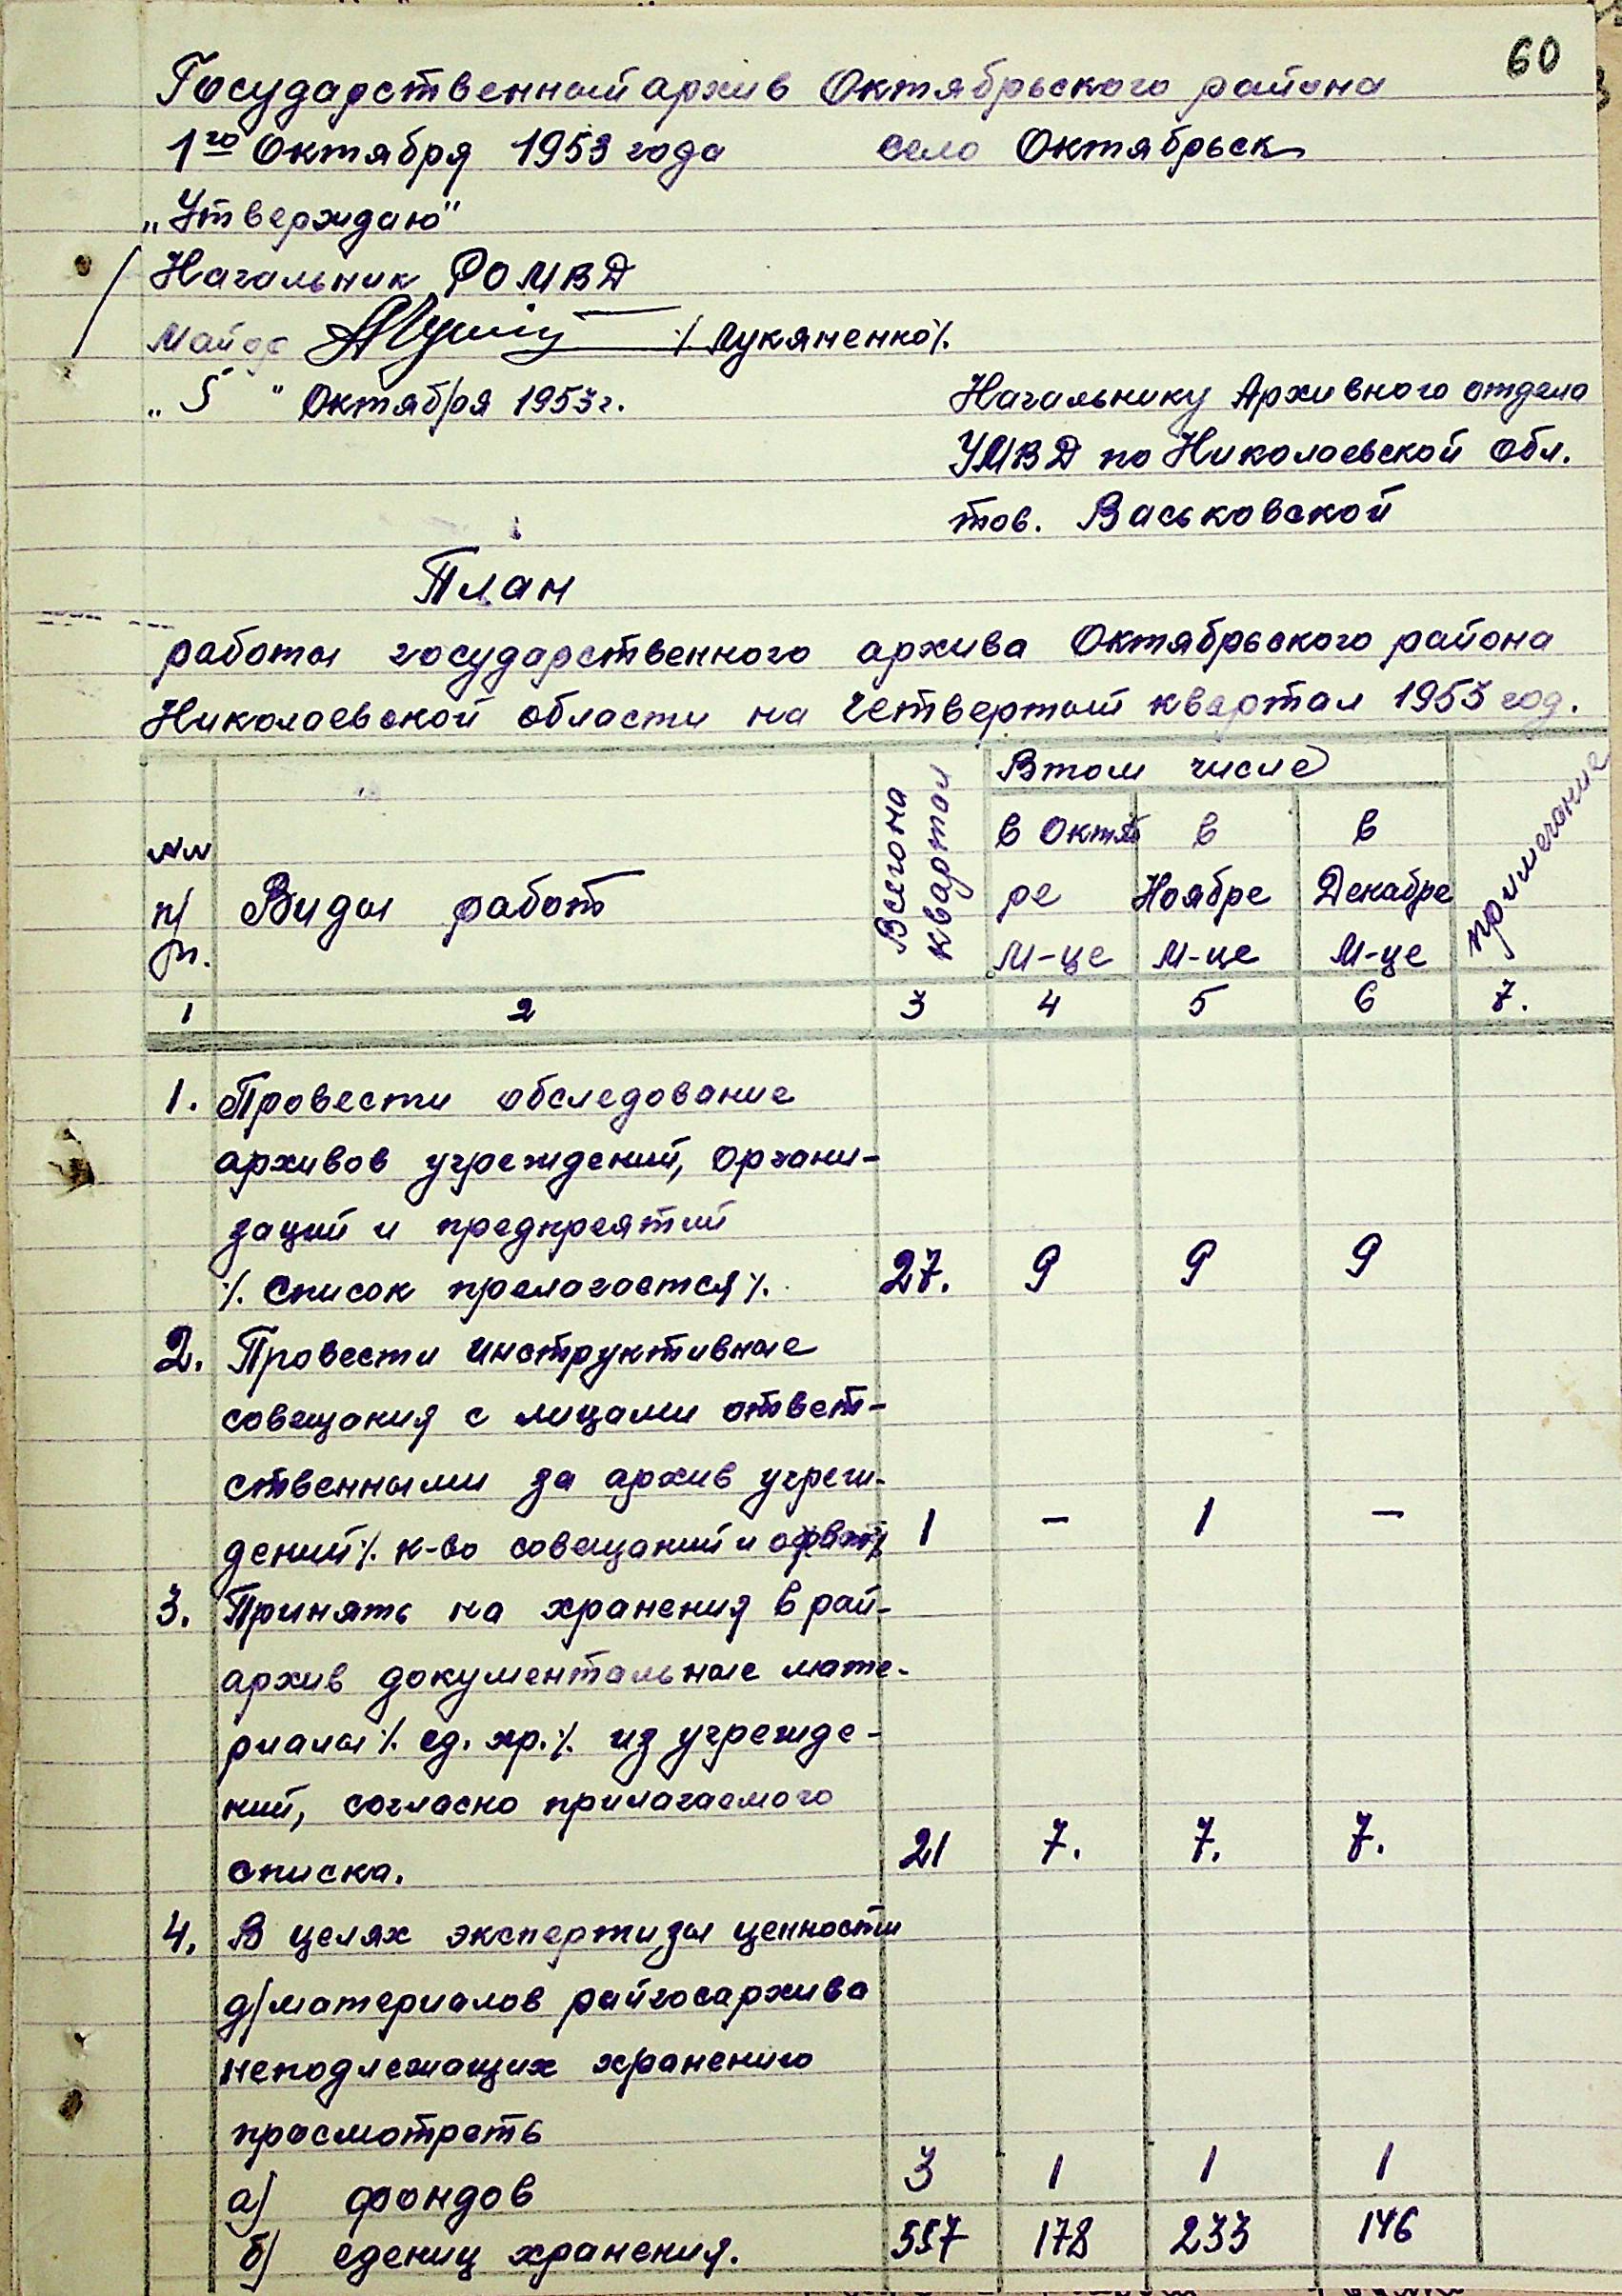 60
Государственный архив Октябрьского района
1го Октября 1953 года село Октябрьск
„Утверждаю"
Начальник РОМВД
Майор ⁒ Лукяненко ⁒
„ 5 " Октября 1953 г.
Начальнику Архивного отдела
УМВД по Николаевской обл.
тов. Васьковской
План
работы государственного архива Октябрьского района
Николаевской области на четвертый квартал 1953 год.
№№ п/п. Виды работ Всего на квартал В том числе примечание
в Октяб ре м-це в Ноябре м-це в Декабре м-це
1 2 3 4 5 6 7.
1. Провести обследование
архивов учреждений, органи-
заций и предприятий
⁒ Список прелагается ⁒ 27. 9 9 9
2. Провести инструктивные
совещания с лицами ответ-
ственными за архив учреж-
дений ⁒ к-во совещаний и 1 – 1 –
3. Принять на хранения в рай-
архив документальные мате-
риалы ⁒ ед. хр. ⁒ из учрежде-
ний, согласно прилагаемого
списка. 21 7. 7. 7.
4. В целях экспертизы ценности
д/материалов райгосархива
неподлежащих хранению
просмотреть
а) фондов 3 1 1 1
б) едениц хранения. 557 178 233 146